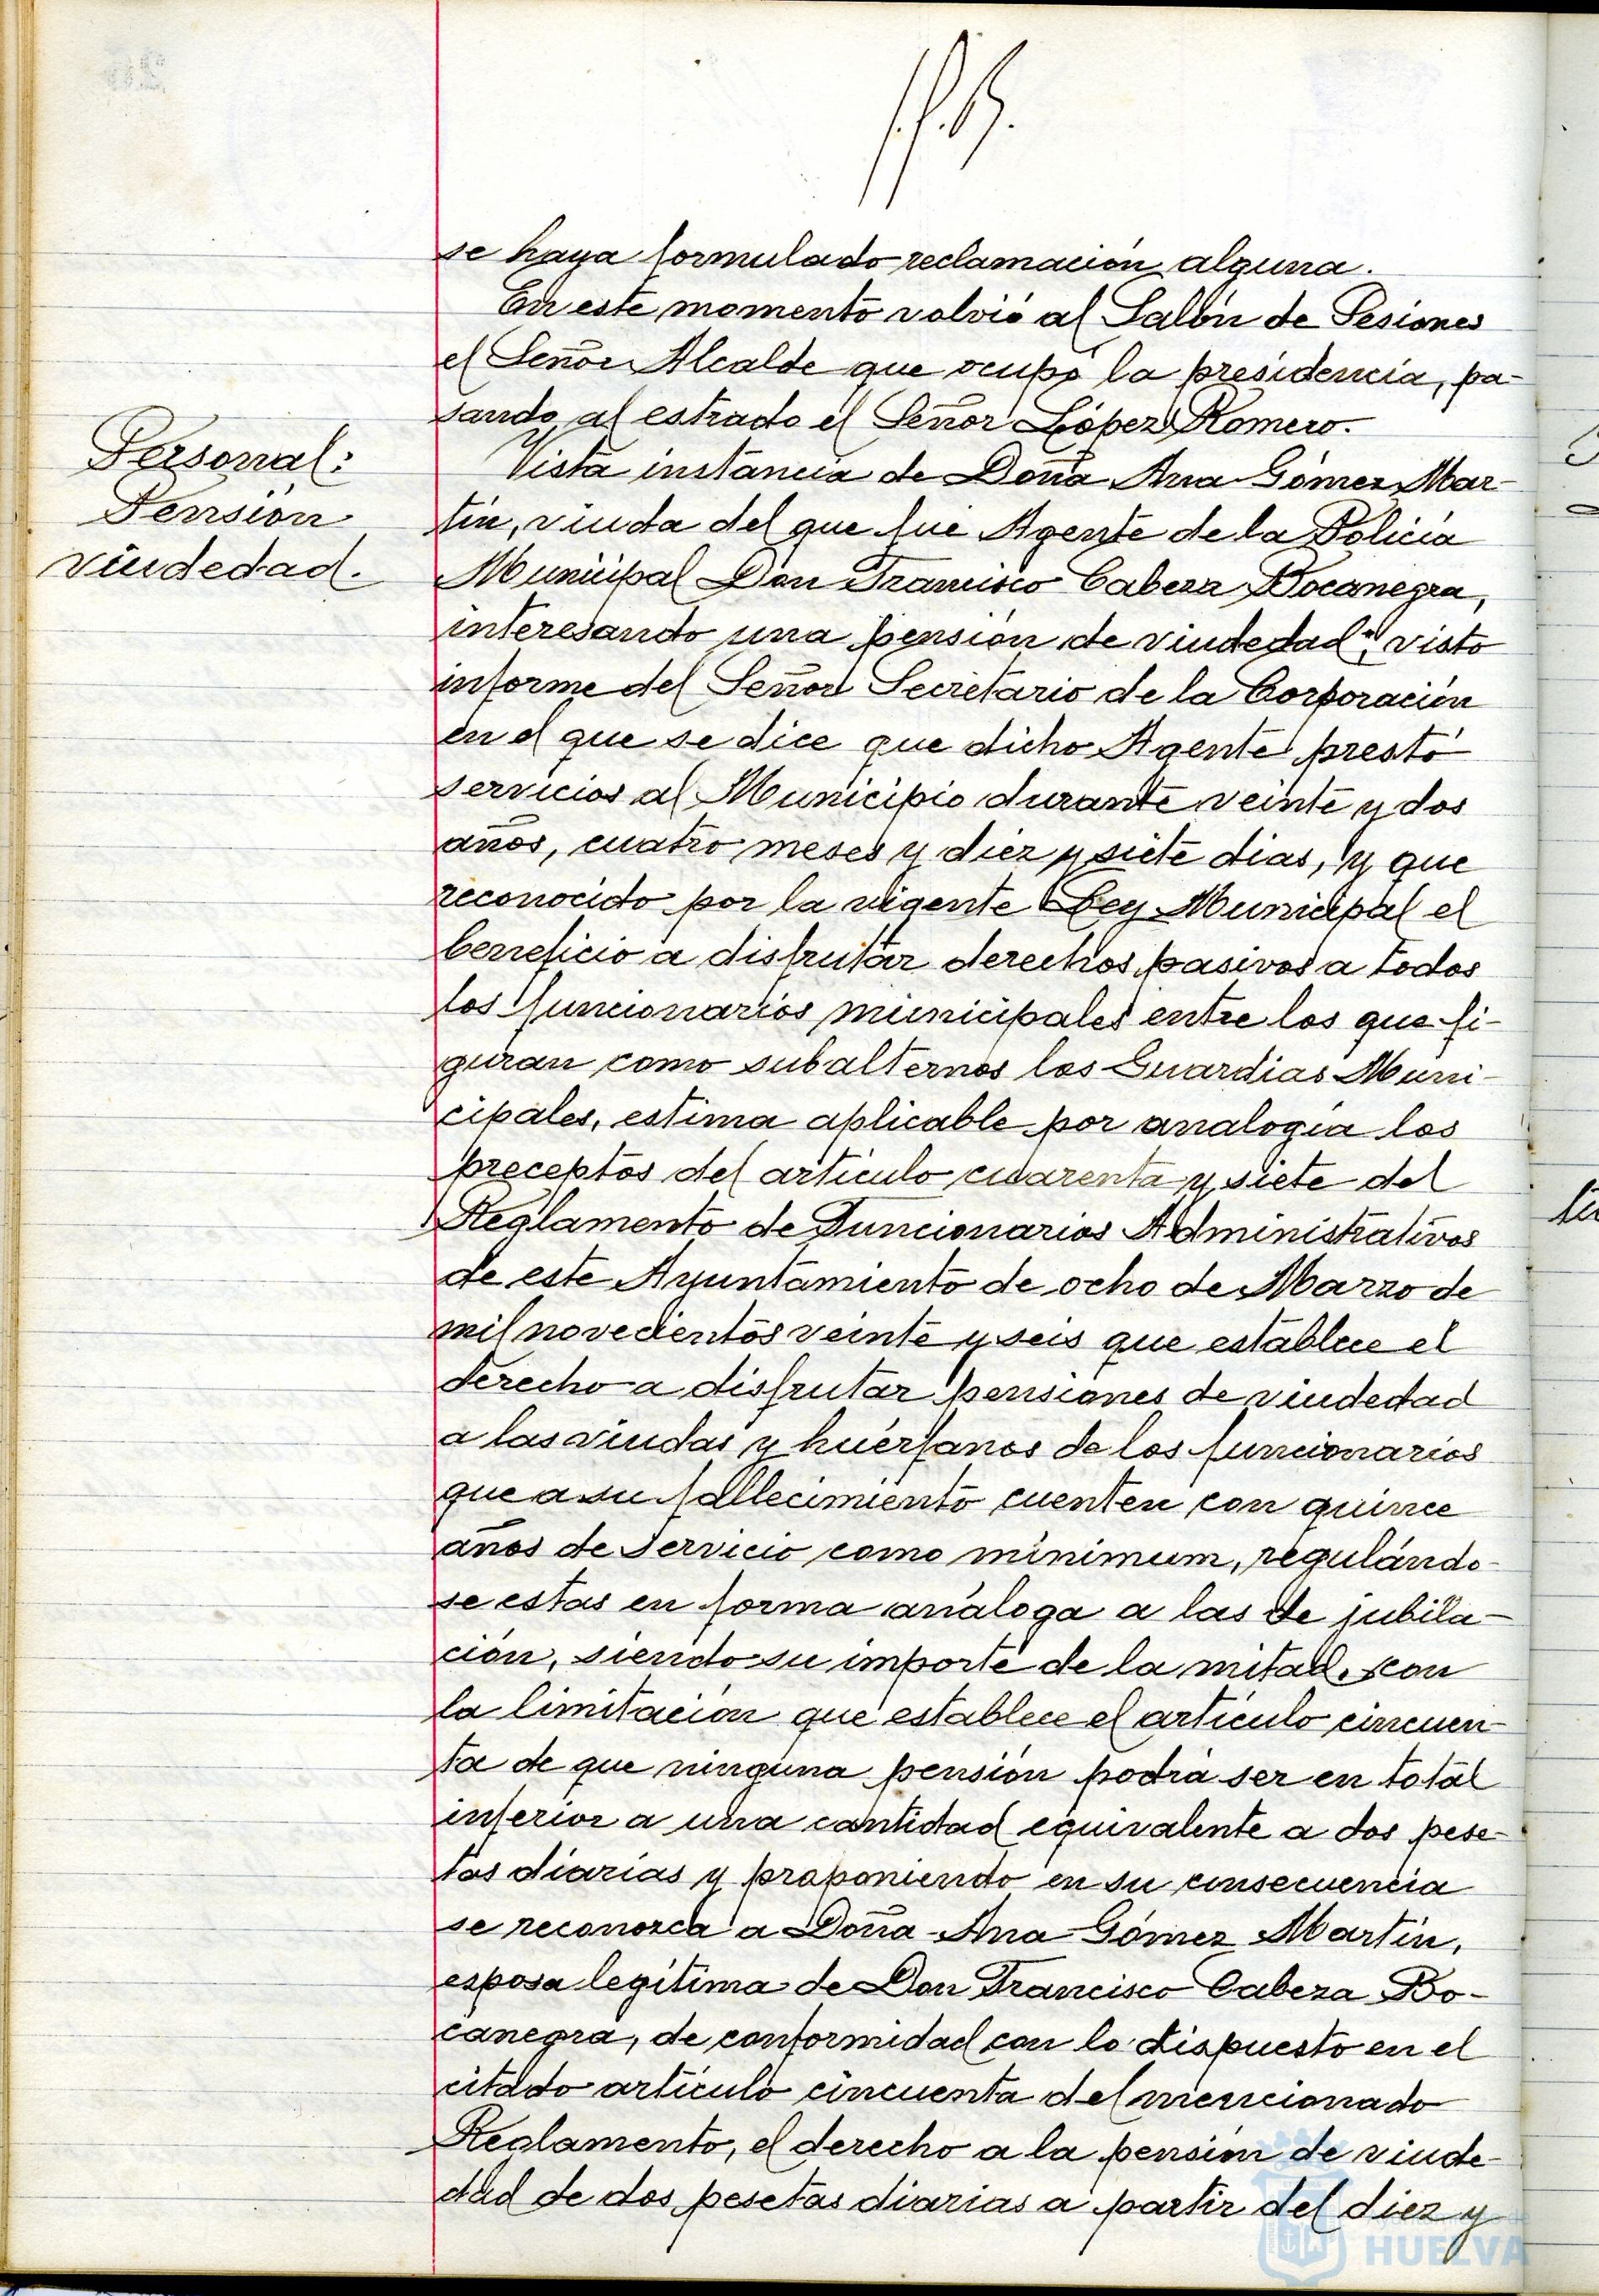 se haya formulado reclamación alguna.
En este momento volvió al Salón de Sesiones
el Señor Alcalde que ocupó la presidencia, pa-
sando al estrado el Señor López Romero.
Personal:
Pensión
viudedad.
Vista instancia de Doña Ana Gómez Mar-
tín, viuda del que fué Agente de la Policía
Municipal Don Francisco Cabeza Bocanegra,
interesando una pensión de viudedad; visto
informe del Señor Secretario de la Corporación
en el que se dice que dicho Agente prestó
servicios al Municipio durante veinte y dos
años, cuatro meses y diez y siete dias, y que
reconocido por la vigente Ley Municipal el
beneficio a disfrutar derechos pasivos a todos
los funcionarios municipales entre los que fi-
guran como subalternos los Guardias Muni-
cipales, estima aplicable por analogía los
preceptos del artículo cuarenta y siete del
Reglamento de Funcionarios Administrativos
de este Ayuntamiento de ocho de Marzo de
mil novecientos veinte y seis que establece el
derecho a disfrutar pensiones de viudedad
a las viudas y huérfanos de los funcionarios
que a su fallecimiento cuenten con quince
años de servicio como mínimum, regulándo-
se estas en forma análoga a las de jubila-
ción, siendo su importe de la mitad, con
la limitación que establece el artículo cincuen-
ta de que ninguna pensión podrá ser en total
inferior a una cantidad equivalente a dos pese-
tas diarias y proponiendo en su consecuencia
se reconozca a Doña Ana Gómez Martín,
esposa legítima de Don Francisco Cabeza Bo-
canegra, de conformidad con lo dispuesto en el
citado artículo cincuenta del mencionado
Reglamento, el derecho a la pensión de viude-
dad de dos pesetas diarias a partir del diez y
HUELVA